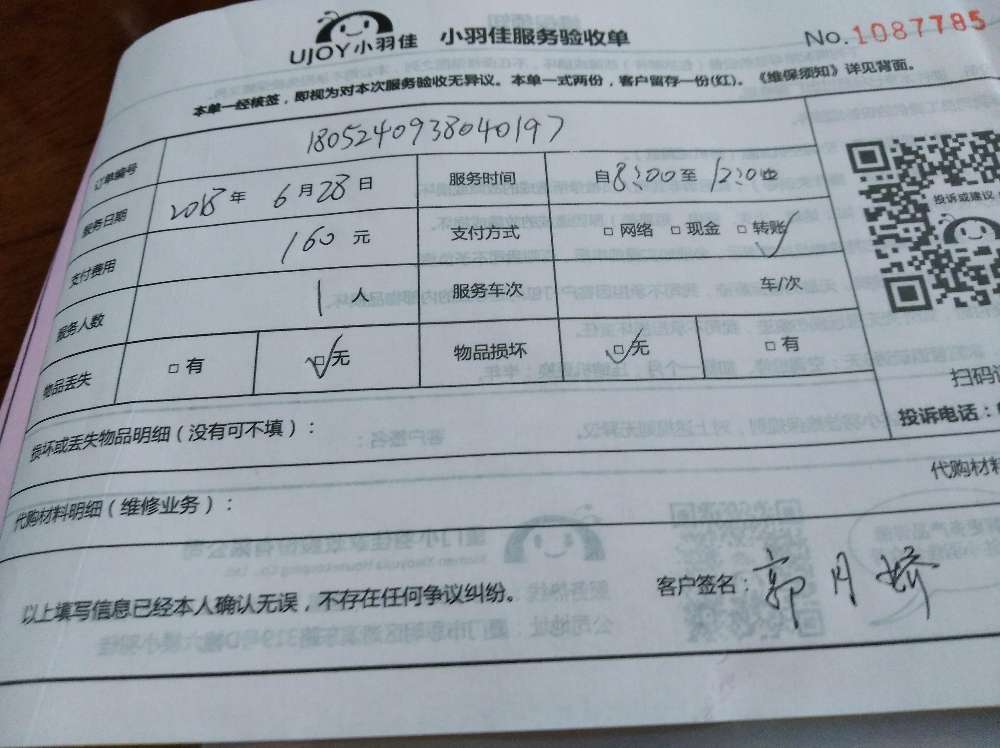 UJOY小羽佳 小羽佳服务验收单 No.1087785
本单一经核签，即视为对本次服务验收无异议。本单一式两份，客户留存一份(红)。《维保须知》详见背面。
订单编号 1805240938040197
服务日期 2018年 6月28日 服务时间 自8:00至12:00
支付费用 160元 支付方式 □网络 □现金 □转账
服务人数 1人 服务车次 车/次
物品丢失 □有 □无 物品损坏 □无 □有
投诉或建议
扫码
投诉电话：
损坏或丢失物品明细（没有可不填）：
代购材料
代购材料明细（维修业务）：
以上填写信息已经本人确认无误，不存在任何争议纠纷。 客户签名：郭月娇